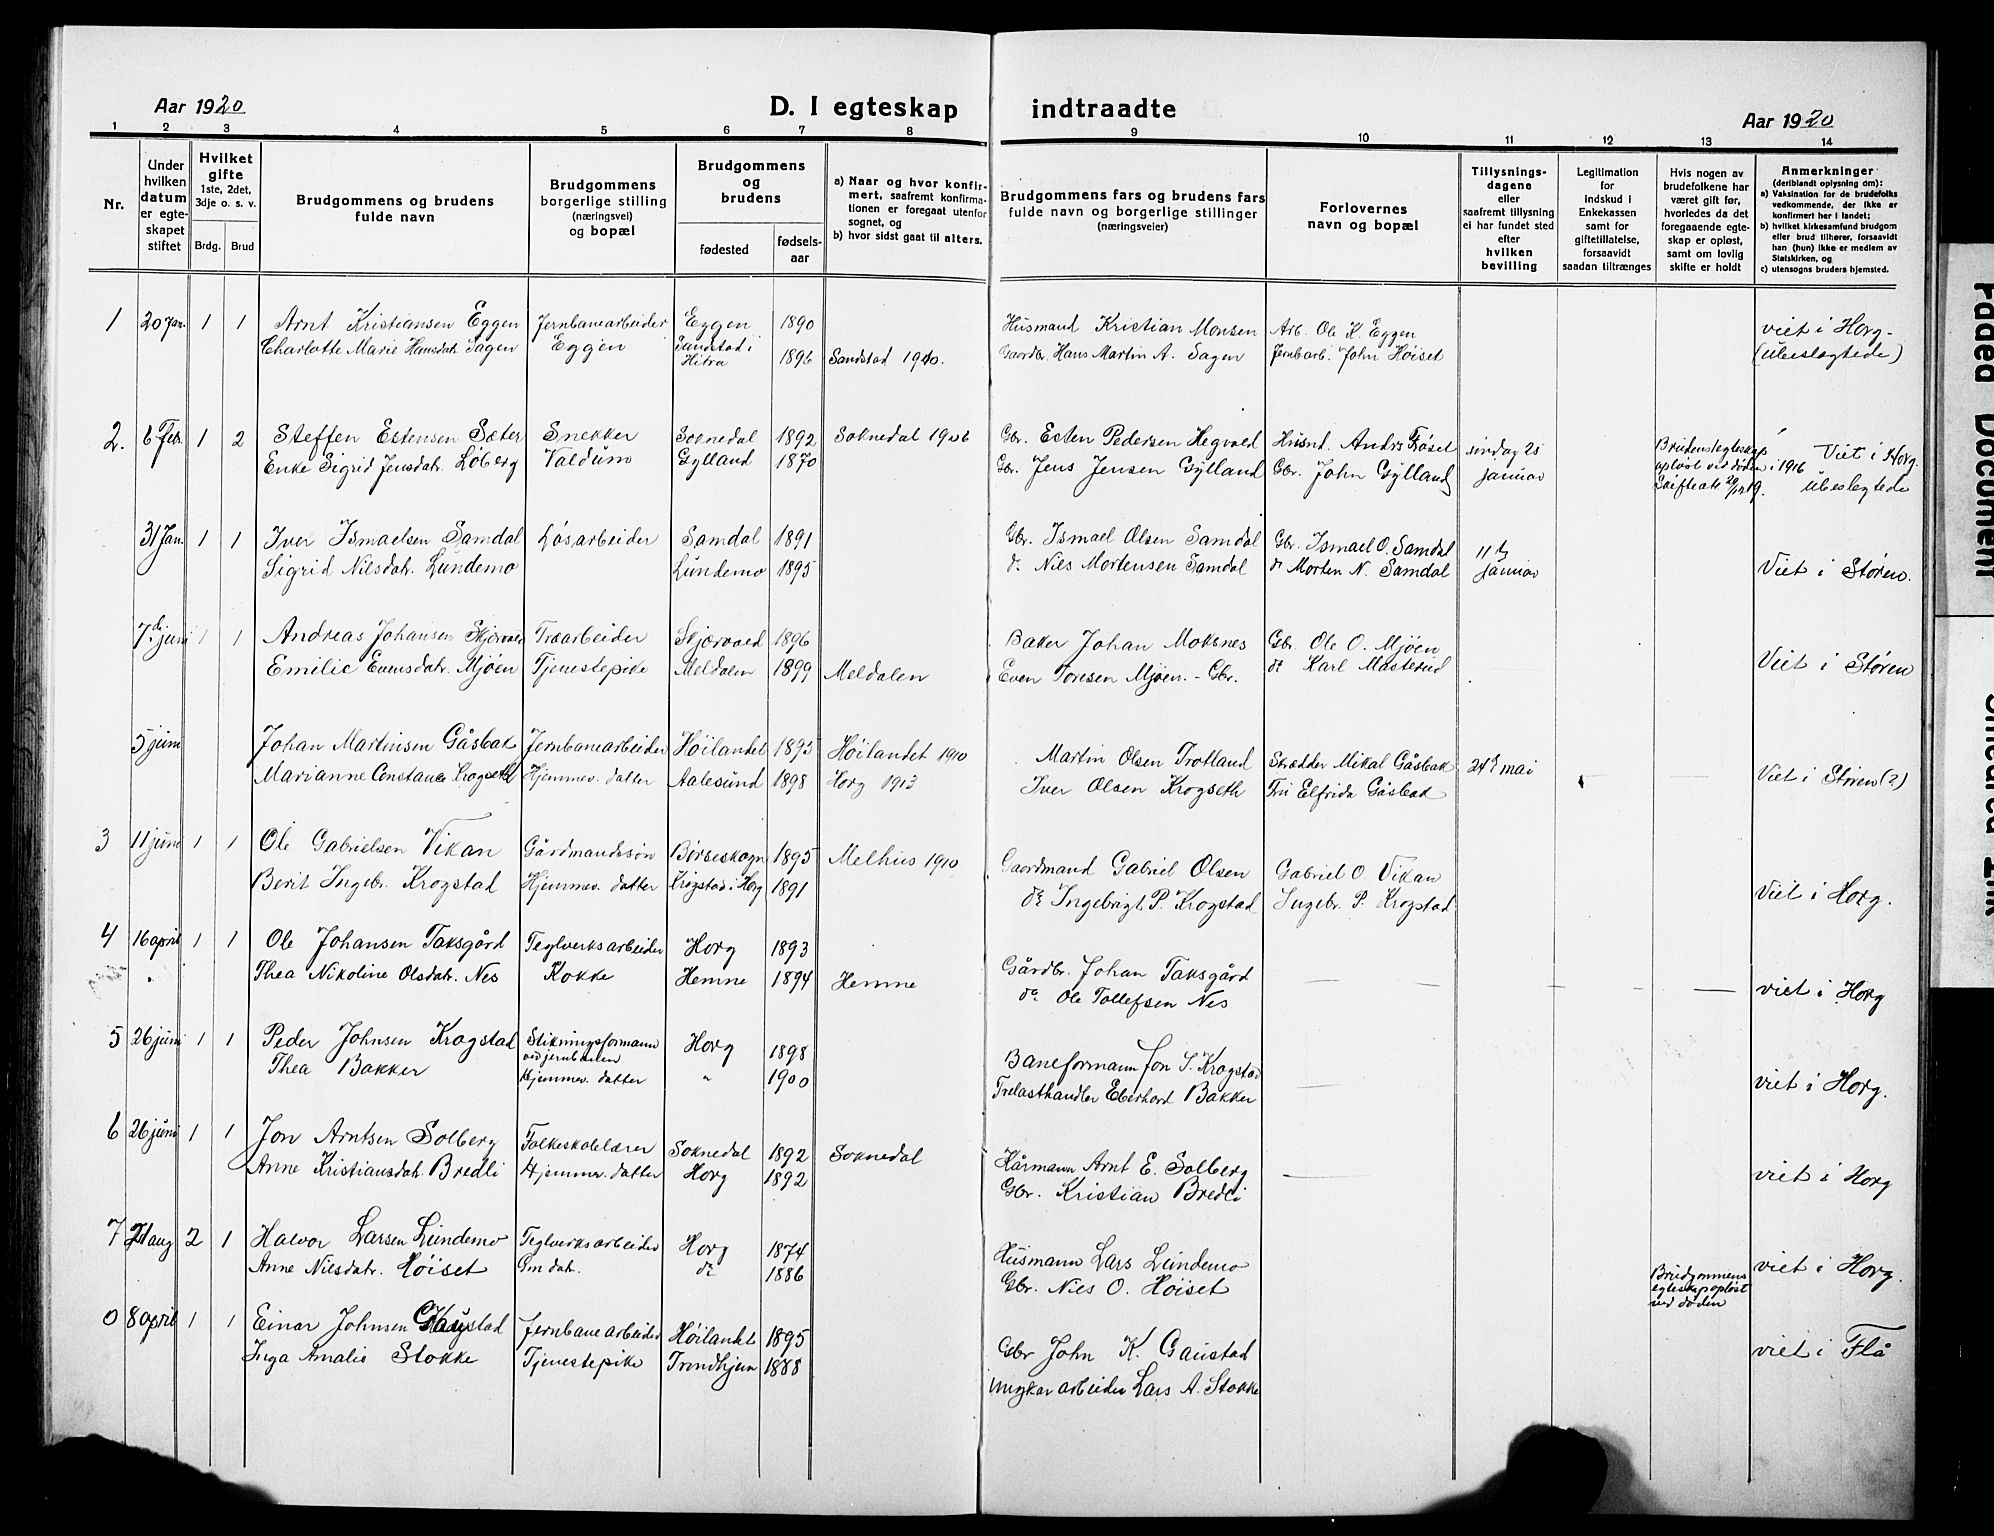 Aar 1920
D. I egteskap indtraadte
Aar 1920
1 2 3 4 5 6 7 8 9 10 11 12 13 14
Nr.
Under hvilken datum er egteskapet stiftet
Hvilket gifte 1ste, 2det, 3dje o. s. v.
Brdg. Brud
Brudgommens og brudens fulde navn
Brudgommens borgerlige stilling (næringsvei) og bopæl
Brudgommens og brudens
fødested
fødselsaar
a) Naar og hvor konfirmert, saafremt konfirmationen er foregaat utenfor sognet, og
b) hvor sidst gaat til alters.
Brudgommens fars og brudens fars fulde navn og borgerlige stillinger (næringsveier)
Forlovernes navn og bopæl
Tillysningsdagene eller saafremt tillysning ei har fundet sted efter hvilken bevilling
Legitimation for indskud i Enkekassen samt for giftetillatelse, forsaavidt saadan tiltrænges
Hvis nogen av brudefolkene har været gift før, hvorledes da det foregaaende egteskap er opløst, samt om lovlig skifte er holdt
Anmerkninger (deriblandt oplysning om):
a) Vaksination for de brudefolks vedkommende, der ikke er konfirmert her i landet;
b) hvilket kirkesamfund brudgom eller brud tilhører, forsaavidt han (hun) ikke er medlem av Statskirken, og
c) utensogns bruders hjemsted.
1 20 Jan. 1 1 Arnt Kristiansen Eggen Jernbanearbeider Eggen 1890 Husmand Kristian Monsen Arb. Ole K. Eggen viet i Horg.
Charlotte Marie Hansdatr. Sagen Eggen Sandstad i Hitra 1896 Sandstad 1910. Gaardbr. Hans Martin A. Sagen Jernbarb. John Høiset (ubeslegtede)
2. 6 Febr. 1 2 Steffen Estensen Sæter Snekker Soknedal 1892 Soknedal 1906 Gbr. Esten Pedersen Hegvold Husmd. Anders Frøset søndag 25 Brudens egteskap Viet i Horg.
Enke Sigrid Jensdatr. Løberg Valdum Gylland 1870 Gbr. Jens Jensen Gylland Gbr. John Gylland januar opløst ved døden i 1916 ubeslegtede
31 Jan. 1 1 Iver Ismaelsen Samdal Løsarbeider Samdal 1891 Gbr. Ismael Olsen Samdal Gbr. Ismael O. Samdal 11te
Sigrid Nilsdatr. Lundemo Lundemo 1895 do. Nils Mortensen Samdal do Morten N. Samdal januar Viet i Støren.
7de juni 1 1 Andreas Johansen Skjervold Træarbeider Skjærvold 1896 Baker Johan Moksnes Gbr. Ole O. Mjøen
Emilie Evensdatr. Mjøen Tjenestepike Meldalen 1899 Meldalen Even Toresen Mjøen. - Gbr. do Karl Mosterud Viet i Støren
5 juni Johan Martinsen Gåsbak Jernbanearbeider Høilandet 1895 Høilandet 1910 Martin Olsen Trotland Skrædder Mikal Gåsbak 24de mai Viet i Støren (?)
Marianne Constance Krogseth Hjemmev. datter Aalesund 1898 Horg 1913 Iver Olsen Krogseth Fru Elfrida Gåsbak
3 11 juni 1 1 Ole Gabrielsen Vikan Gårdmandssøn Børseskogn 1895 Melhus 1910 Gaardmand Gabriel Olsen Gabriel O Vikan
Berit Ingebr. Krogstad Hjemmev. datter Krogstad i Horg 1891 do Ingebrigt P. Krogstad Ingebr. P. Krogstad Viet i Horg.
4 16 april 1 1 Ole Johansen Taksgård Teglverksarbeider Horg 1893 Gårdbr. Johan Taksgård
Thea Nikoline Olsdatr. Nes Kokke Hemne 1894 Hemne do Ole Tollefsen Nes viet i Horg
5 26 juni 1 1 Peder Johnsen Krogstad Stikningsformann ved jernbanen Horg 1898 Baneformann Jon S. Krogstad
Thea Bakker Hjemmev. datter " 1900 Trelasthandler Eberhard Bakker viet i Horg.
6 26 juni 1 1 Jon Arntsen Solberg Folkeskolelærer Soknedal 1892 Soknedal Kårmann Arnt E. Solberg
Anne Kristiansdatr. Bredli Hjemmev. datter Horg 1892 Gbr. Kristian Bredli viet i Horg
7 21 aug 2 1 Halvor Larsen Lundemo Teglverksarbeider Horg 1874 Husmann Lars Lundemo viet i Horg.
Anne Nilsdatr. Høiset Gmdatr. do 1886 Gbr. Nils O. Høiset Brudgommens egteskap opløst ved døden
0 8 april 1 1 Einar Johnsen Gaustad Jernbanearbeider Høilandet 1895 Gbr John K. Gaustad viet i Flå
Inga Amalie Stokke Tjenestepike Trondhjem 1888 arbeider Lars A. Stokke
Faded Document